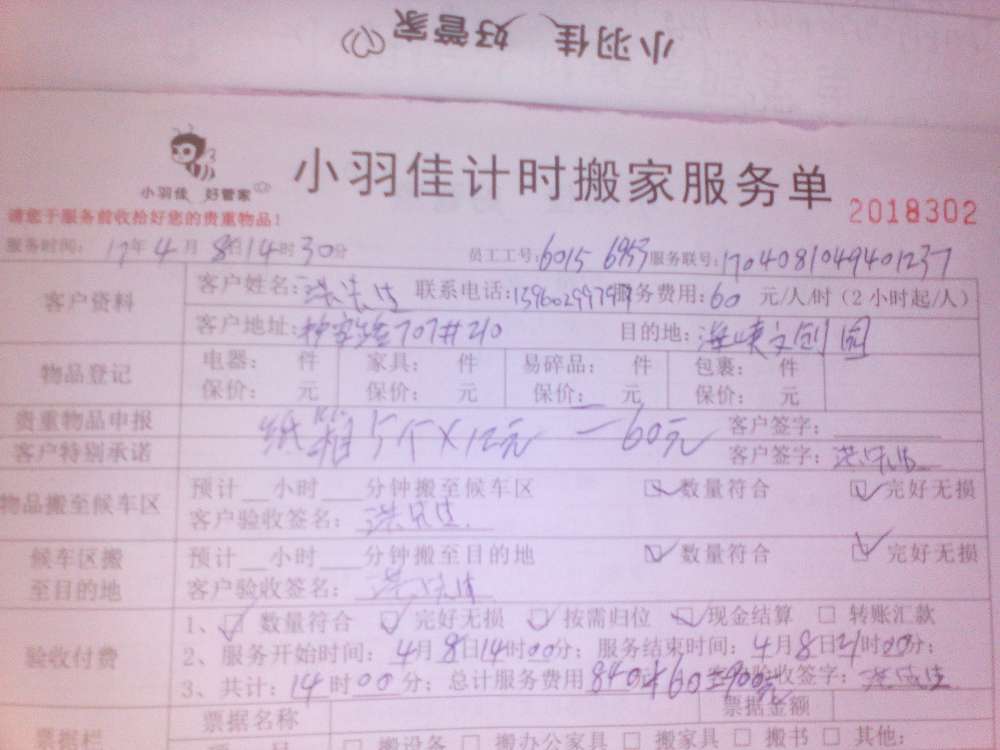 小羽佳 好管家
小羽佳 好管家
小羽佳计时搬家服务单
2018302
请您于服务前收拾好您的贵重物品!
服务时间: 17年4月8日14时30分 员工工号:6015 6953 服务联号:1704081049401237
客户资料
客户姓名: 联系电话: 服务费用:60元/人/时(2小时起/人)
客户地址: 707#210 目的地:海峡文创园
物品登记
电器: 件 家具: 件 易碎品: 件 包裹: 件
保价: 元 保价: 元 保价: 元 保价: 元
贵重物品申报 客户签字:
纸箱5个×12元 — 60元
客户特别承诺 客户签字:
物品搬至候车区
预计__小时___分钟搬至候车区 数量符合 完好无损
客户验收签名:
候车区搬至目的地
预计__小时___分钟搬至目的地 数量符合 完好无损
客户验收签名:
验收付费
1、 数量符合 完好无损 按需归位 现金结算 转账汇款
2、服务开始时间:4月8日14时00分;服务结束时间:4月8日21时00分;
3、共计:14时00分;总计服务费用840+60=900元 客户验收签字:
票据栏
票据名称 票据金额
项目 搬设备 搬办公家具 搬家具 搬书 其他: